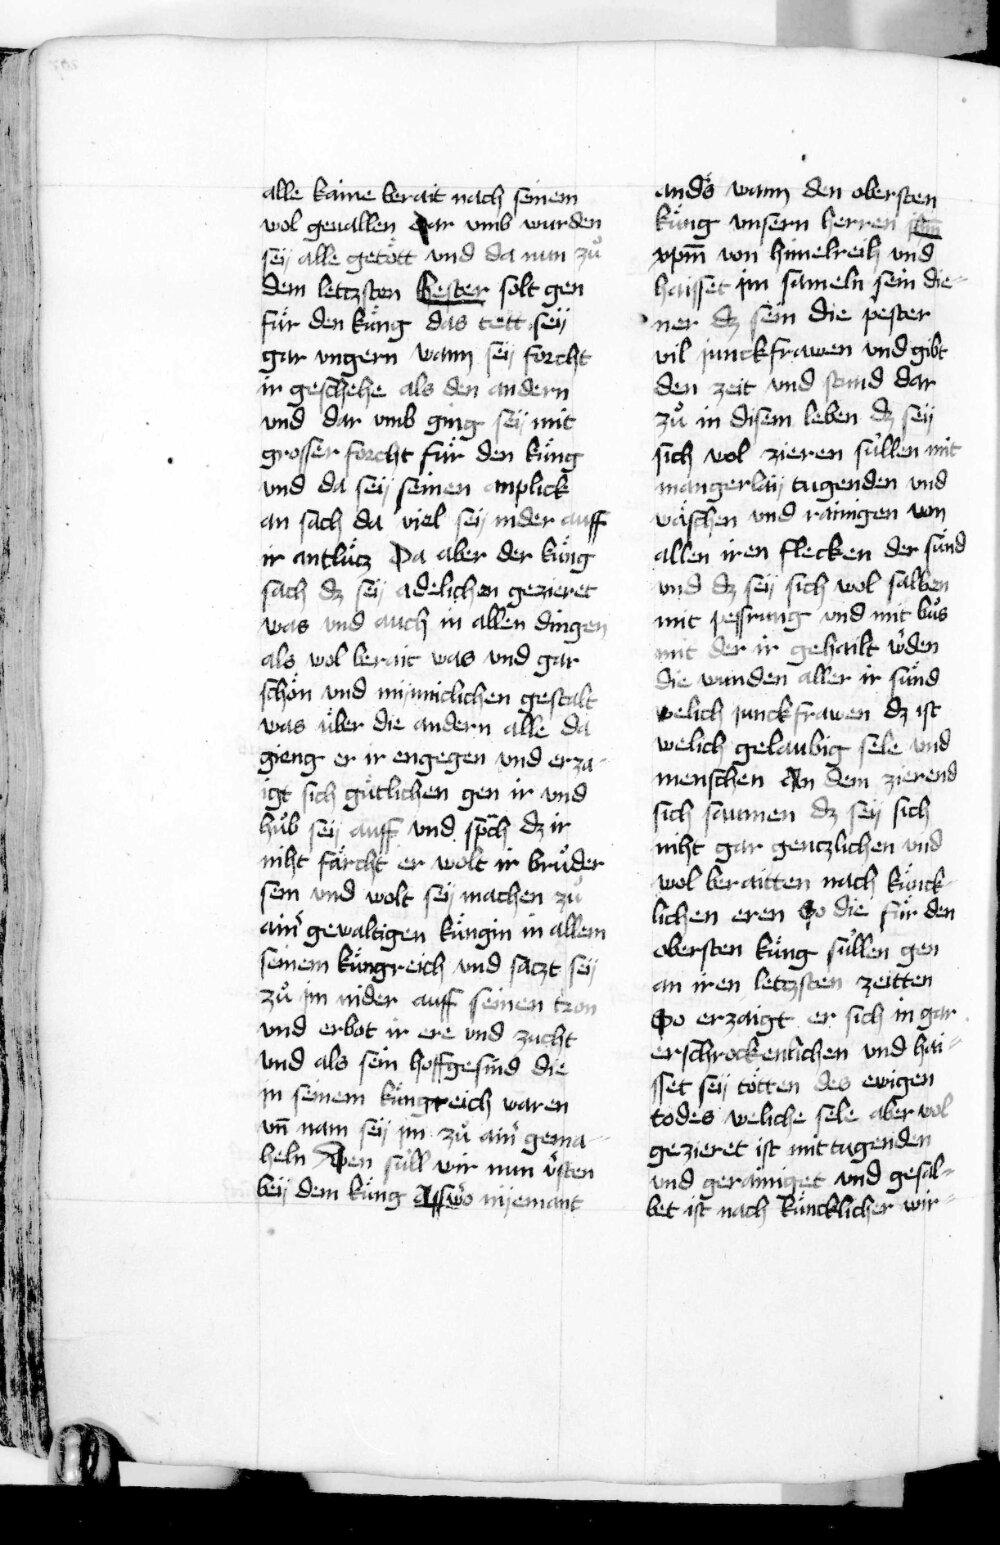 alle kaine berait nach seinem
wol geuallen Dar vmb wurden
seÿ alle getött vnd da nun zů
dem letczsten Hester solt gen
für den küng das tett seÿ
gar vngern wann seÿ forcht
ir geschehe als den andern
vnd dar vmb ging seÿ mit
grosser forcht für den küng
vnd da seÿ seinen anplick
an sach da viel seÿ nider auff
ir antlücz Da aber der küng
sach dz seÿ adelichen gezieret
was vnd auch in allen dingen
als wol berait was vnd gar
schön vnd mÿnniclichen gestalt
was über die andern alle da
gieng er ir engegen vnd erza-
igt sich gütlichen gen ir vnd
hůb seÿ auff vnd sp̄ch dz ir
niht fürcht er wolt ir brůder
sein vnd wolt seÿ machen zů
ain' gewaltigen küngin in allem
seinem küngreich vnd saczt seÿ
zů jm nider auff seinen tron
vnd erbot ir ere vnd zucht
vnd als sein hoffgesind die
in seinem küngreich waren
vn̄ nam seÿ jm zů ain' gema-
heln Den süll wir nun v'sten
beÿ dem küng Asswe'o nÿemant
and's wann den obersten
küng vnsern herren jhm̄
xpm̄ von himelreich vnd
haisset jm sameln sein die-
ner dz sein die pester
vil junckfrawen vnd gibt
den zeit vnd stund dar
zů in disem leben dz seÿ
sich wol zieren süllen mit
mangerlaÿ tugenden vnd
wäschen vnd rainigen von
allen iren flecken der sünd
vnd dz seÿ sich wol salben
mit pessrung vnd mit bůs
mit der ir gehailt w'den
die wunden aller ir sünd
welich junckfrawen dz ist
welich gelaubig sele vnd
menschen An dem zierend
sich saumen dz seÿ sich
niht gar genczlichen vnd
wol beraitten nach künck-
lichen eren So die für den
obersten küng süllen gen
an iren letczsten zeitten
So erzaigt er sich in gar
erschrockenlichen vnd hai-
sset seÿ tötten des ewigen
todes weliche sele aber wol
gezieret ist mit tugenden
vnd gerainiget vnd gesal-
bet ist nach küncklicher wir-